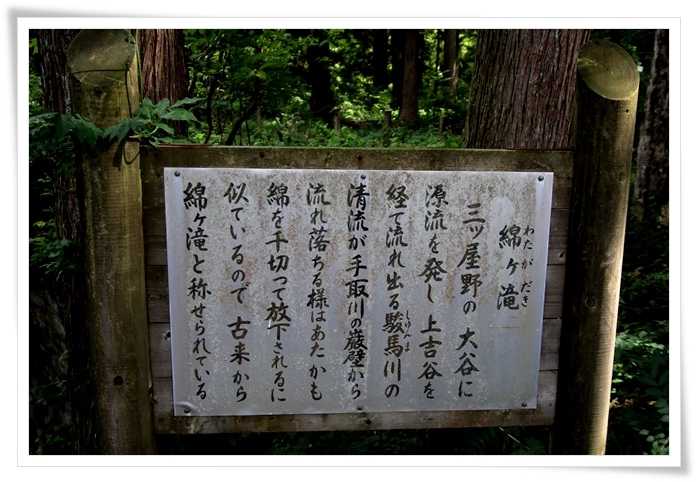 わたがだき
綿ヶ滝
三ッ屋野の大谷に
源流を発し上吉谷を
しゅんま
経て流れ出る駿馬川の
清流が手取川の巌壁から
流れ落ちる様はあたかも
綿を千切って放下されるに
似ているので古来から
綿ヶ滝と称せられている